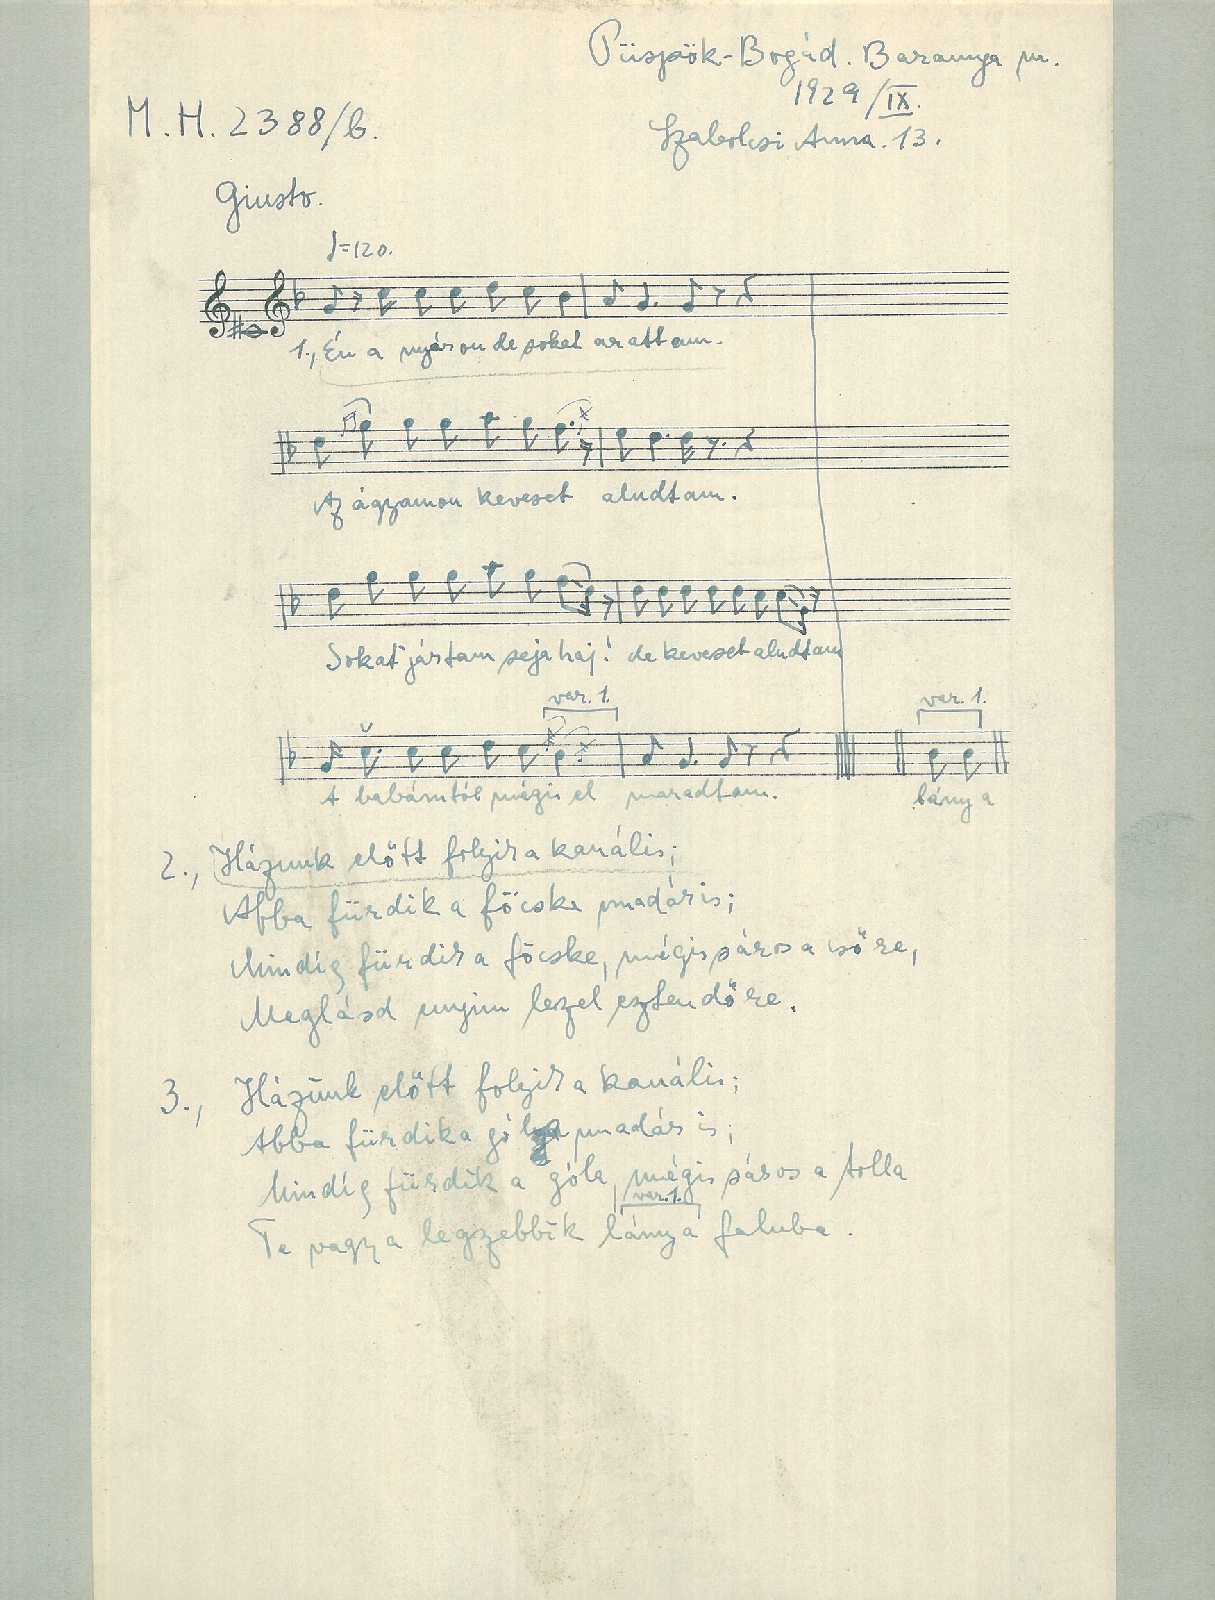 Püspök-Bogád. Baranya m.
1929/IX.
M.H. 2388/b.
Szabolcsi Anna. 13.
Giusto.
♩=120.
1., Én a nyáron de soket arattam.
Az ágyamon keveset aludtam.
Sokat jártam seja haj! de keveset aludtam
var. 1. var. 1.
A babámtól mégis el maradtam. lány a
2., Házunk előtt folyir a kanális;
Abba fürdik a föcske madáris;
Mindíg fürdir a föcske, mégis sáros a csőre,
Meglásd enyim leszel esztendőre.
3., Házünk előtt folyir a kanális;
Abba fürdik a gól madár is;
Mindíg fürdik a góla, mégis sáros a tolla
var. 1.
Te vagy a legszebbik lánya faluba.